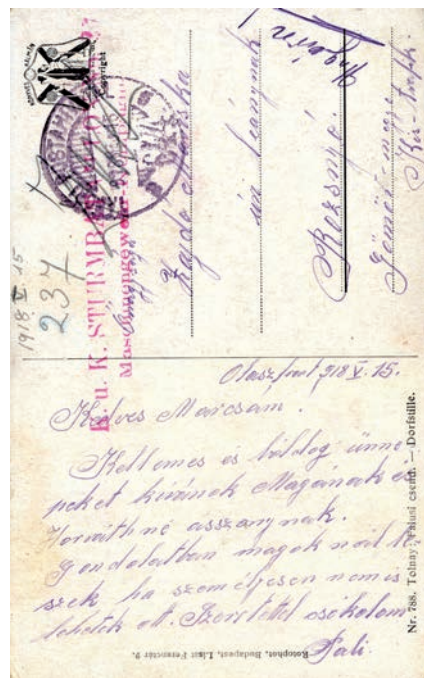 1918 V. 15
237
K. u. K. STURMBA
Maschinengewehr-
Copyright
Zajdó Mariska
úrileánynak
Rozsnyó.
Ungarn
Gömör-megye
Olasz front 918 V. 15.
Kedves Marcsám.
Kellemes es boldog ünne
peket kívánok Magának és
Horváthné asszonynak.
Gondolatban maguknál le
szek ha személyesen nem is
lehetek ott. Szeretettel csókolom
Pali.
Nr. 788. Tolnay: Falusi csend. — Dorfstille.
Rotophot, Budapest, Liszt Ferenctér 9.